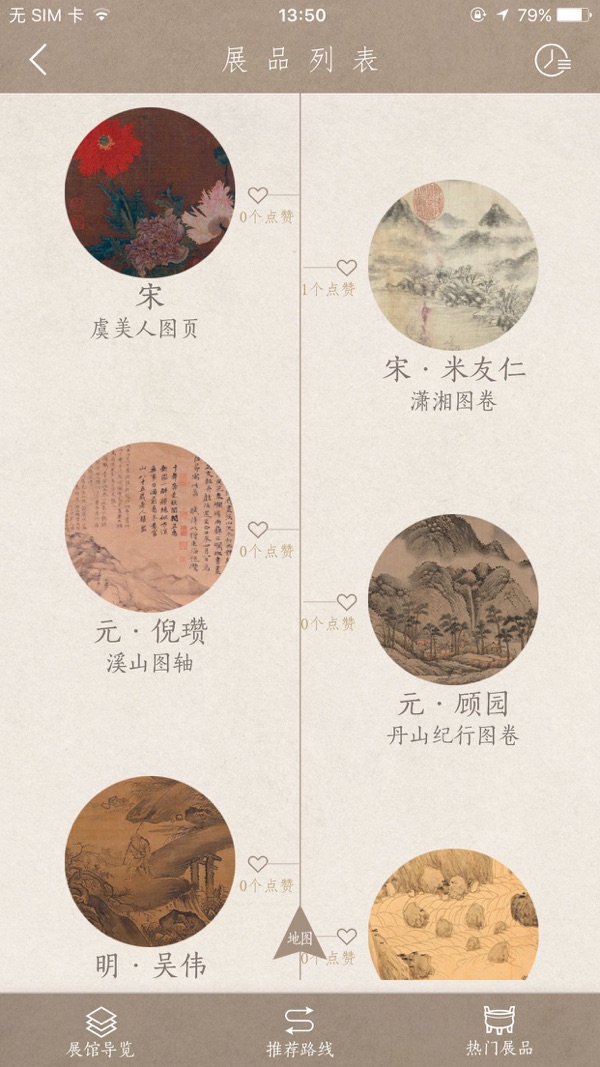 无 SIM 卡
13:50
79%
展品列表
0个点赞
宋
虞美人图页
1个点赞
宋·米友仁
潇湘图卷
0个点赞
元·倪瓒
溪山图轴
0个点赞
元·顾园
丹山纪行图卷
0个点赞
明·吴伟
地图
0个点赞
展馆导览
推荐路线
热门展品